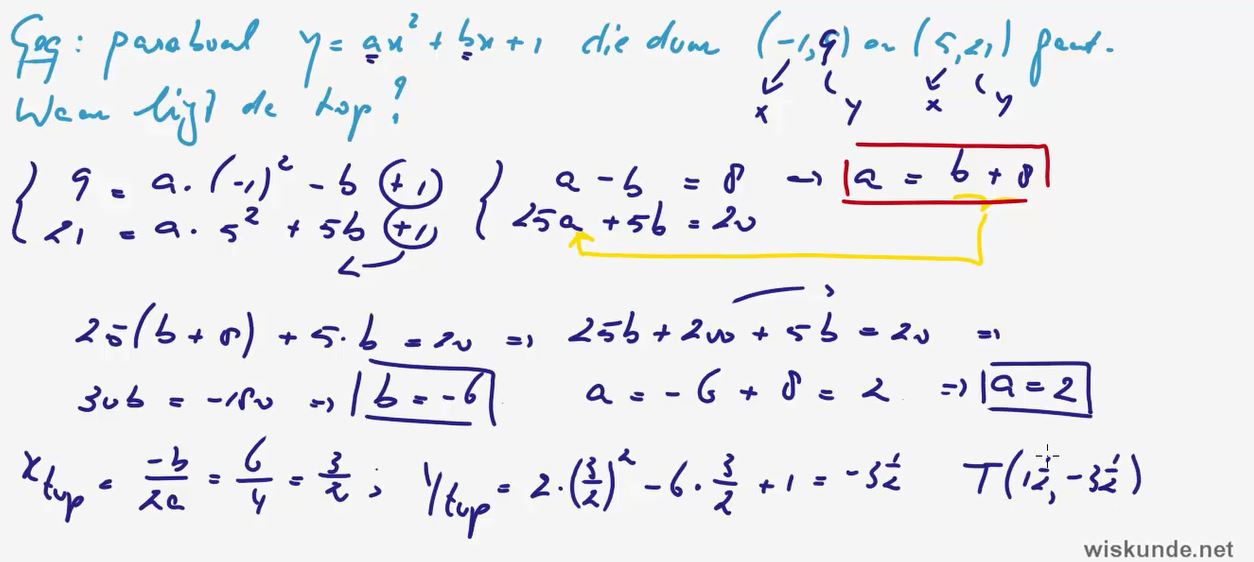 Geg: parabool y = ax² + bx + 1 die door (-1, 9) en (5, 21) gaat.
x y x y
Waar ligt de top?
{ 9 = a · (-1)² - b + 1 { a - b = 8 → a = b + 8
21 = a · 5² + 5b + 1 25a + 5b = 20
25(b + 8) + 5 · b = 20 ⇒ 25b + 200 + 5b = 20 ⇒
30b = -180 ⇒ b = -6 a = -6 + 8 = 2 ⇒ a = 2
x_top = -b/2a = 6/4 = 3/2 ; y_top = 2 · (3/2)² - 6 · 3/2 + 1 = -3½ T(1½, -3½)
wiskunde.net